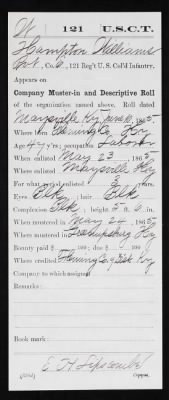 W | 121 | U.S.C.T.
Hampton Williams
Pvt., Co. G, 121 Reg't U. S. Col'd Infantry.
Appears on
Company Muster-in and Descriptive Roll
of the organization named above. Roll dated
Maysville Ky, June 10, 1865
Where born Fleming Co, Ky
Age 44 y'rs; occupation Laborer
When enlisted May 23, 1865
Where enlisted Maysville Ky
For what period enlisted years.
Eyes Blk; hair Blk
Complexion Blk; height 5 ft. 6 in.
When mustered in May 24, 1865
Where mustered in Ky
Bounty paid $ 100; due $ 100
Where credited Fleming Co, Ky
Company to which assigned
Remarks:
Book mark:
E. H. Lipscombe
Copyist.